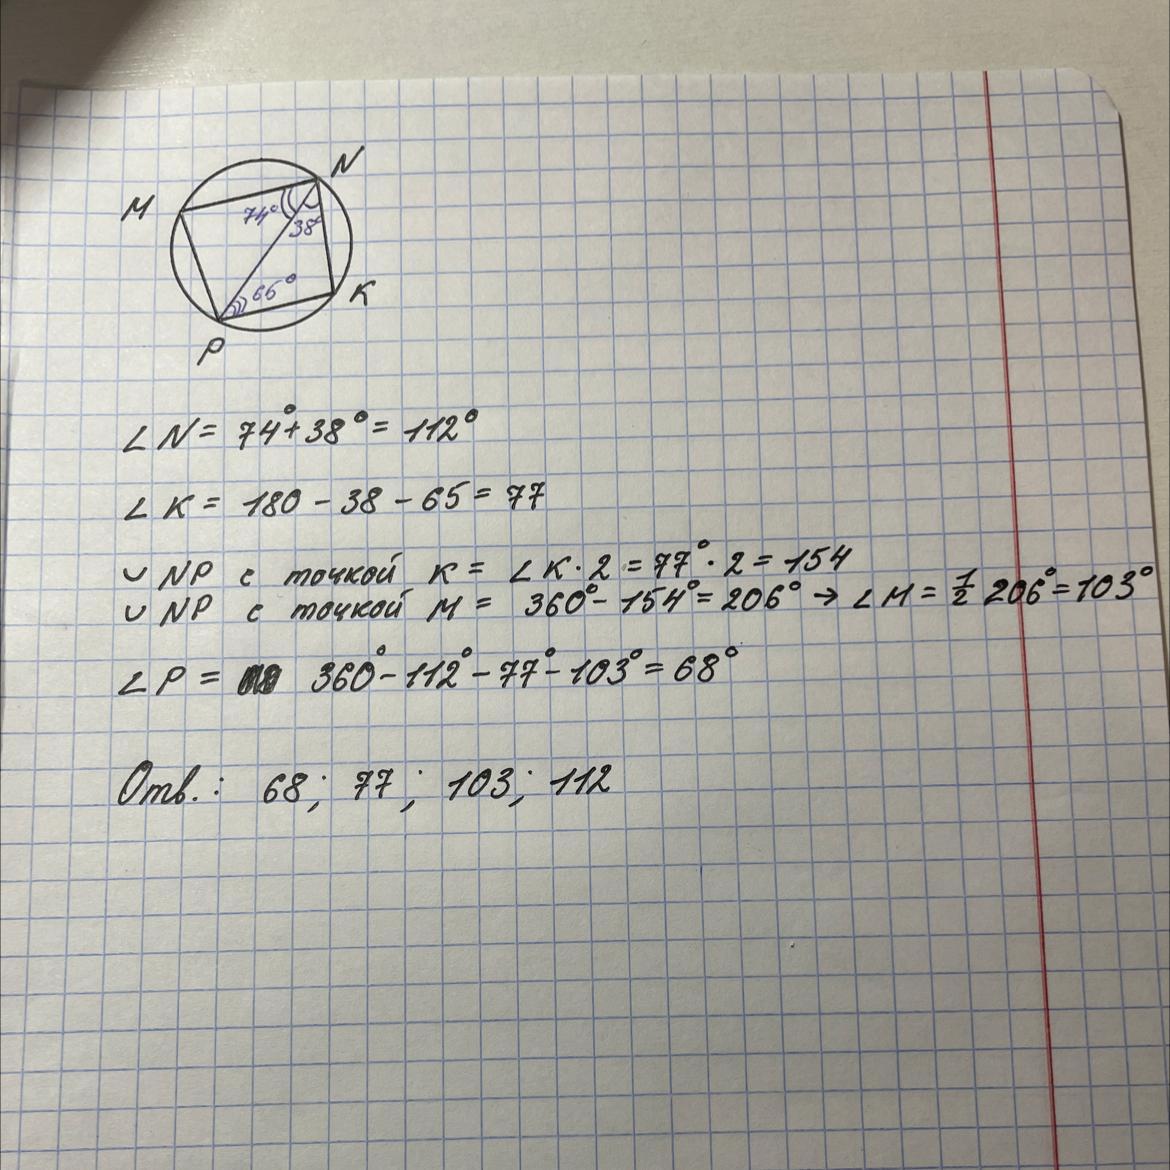 N
M
74°
38°
65°
K
P
∠N = 74° + 38° = 112°
∠K = 180 - 38 - 65 = 77
∪ NP с точкой K = ∠K · 2 = 77° · 2 = 154
∪ NP с точкой M = 360° - 154° = 206° → ∠M = 1/2 206° = 103°
∠P = 360° - 112° - 77° - 103° = 68°
Отв.: 68; 77; 103; 112